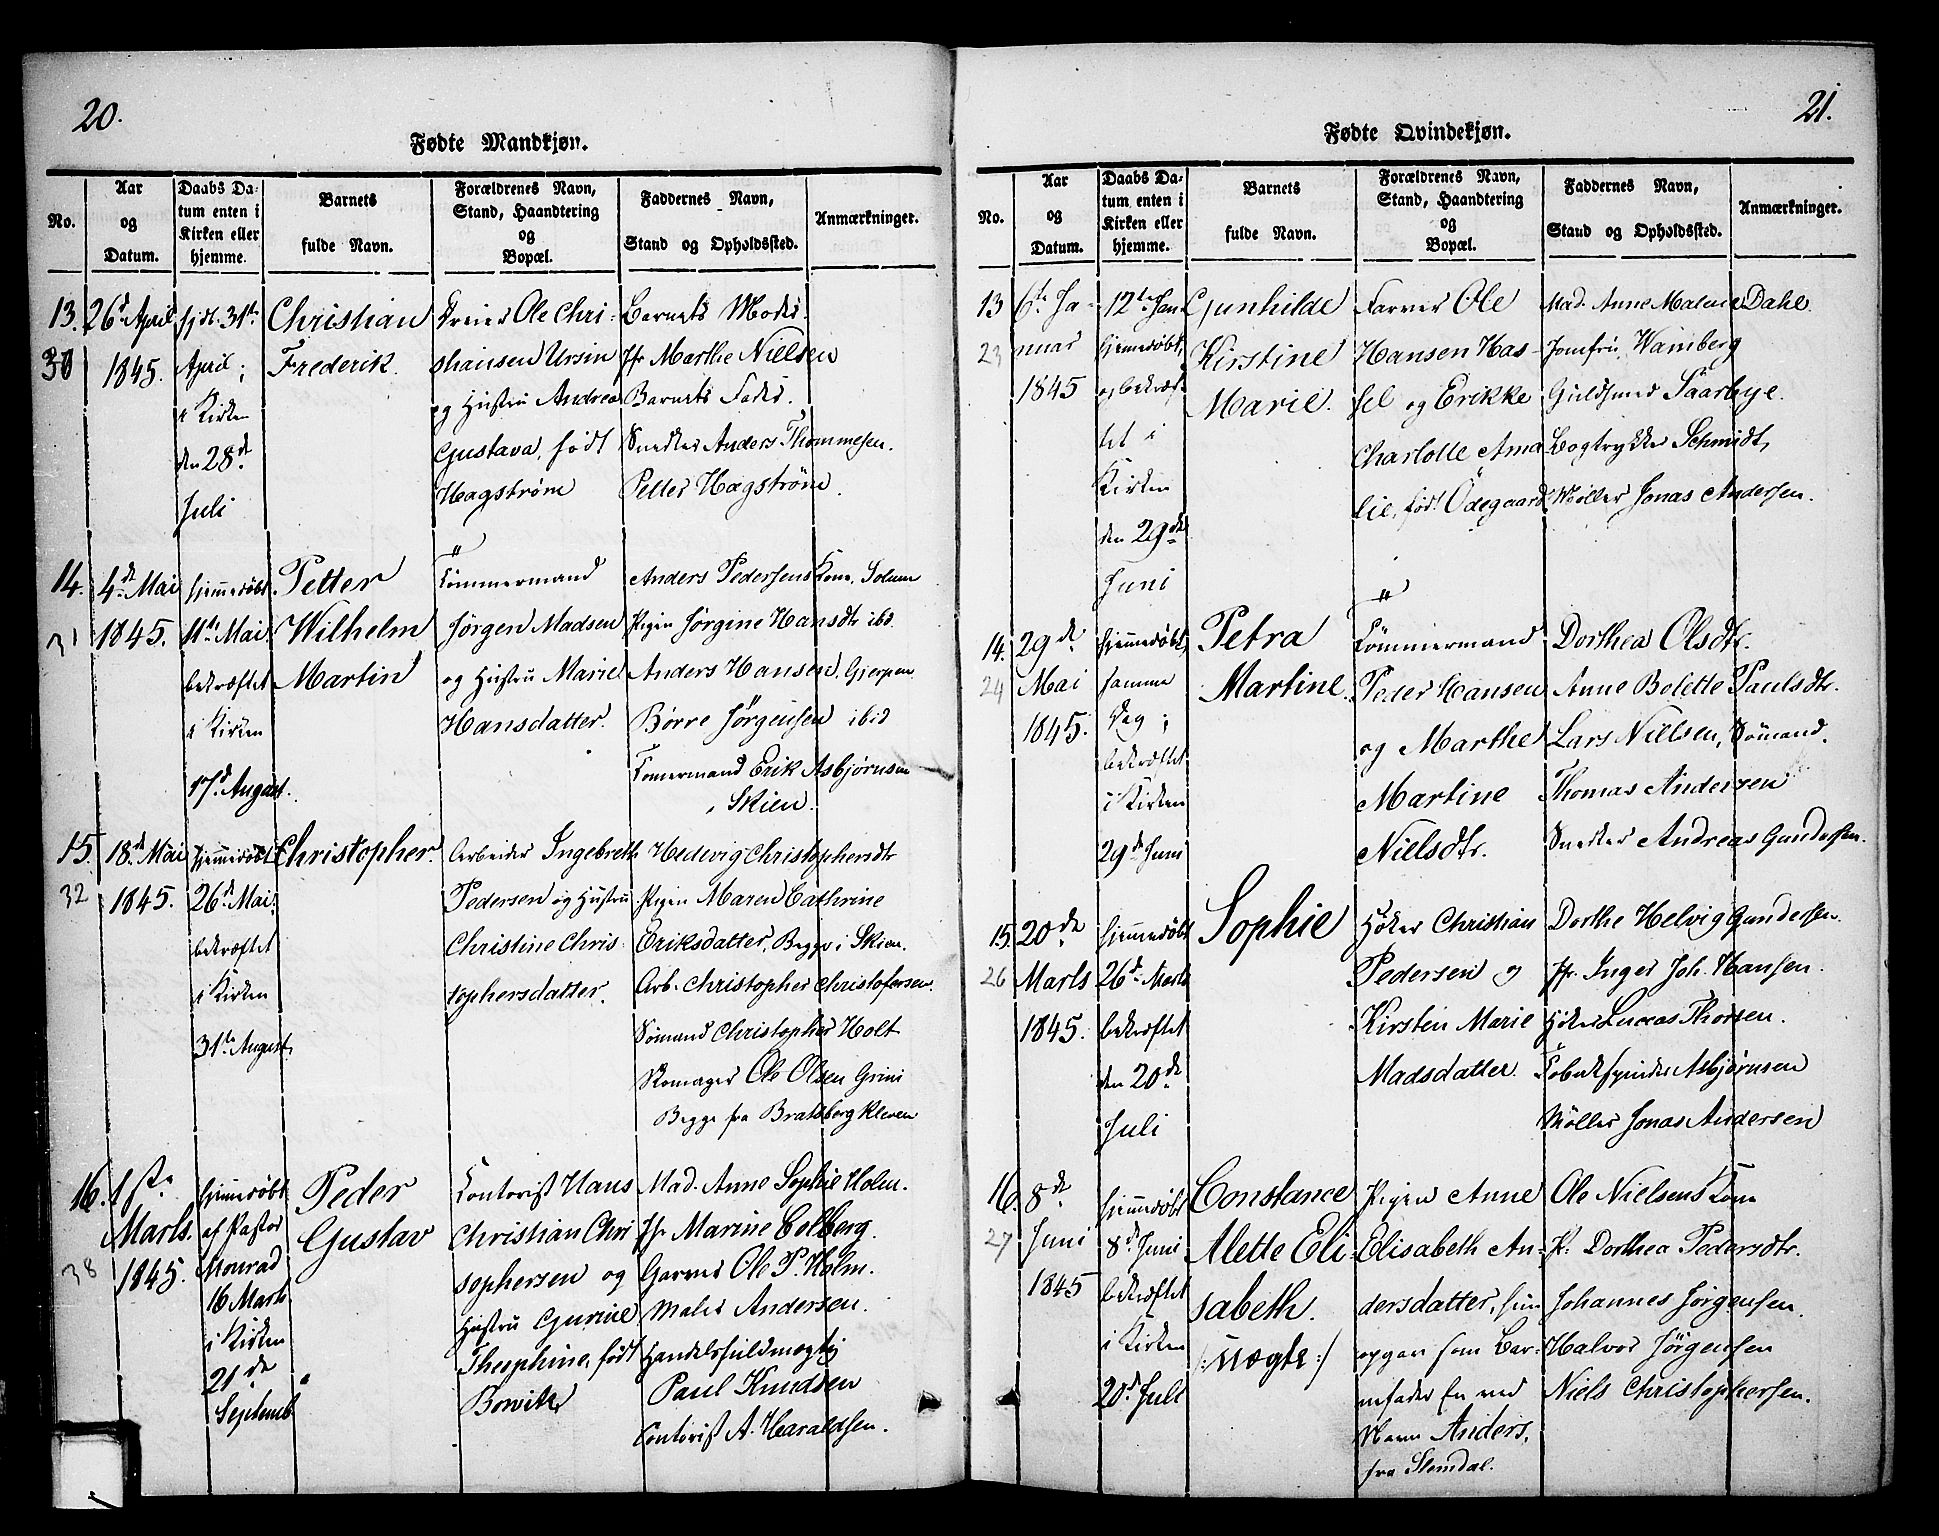 20.
Fødte Mandkjøn.
No.
Aar
og
Datum.
Daabs Da-
tum enten i
Kirken eller
hjemme.
Barnets
fulde Navn.
Forældrenes Navn,
Stand, Haandtering
og
Bopæl.
Faddernes Navn,
Stand og Opholdssted.
Anmærkninger.
13.
30
26d April
1845.
hjdt. 31te
April;
i Kirken
den 28de
Juli
Christian
Frederik.
Dreier Ole Chri-
stiansen Ursin
og Hustru Andrea
Gustava, født
Hagstrøm
Barnets Moder.
Jfr Marthe Nielsen
Barnets Fader.
Snedker Anders Thommesen.
Petter Hagstrøm.
14.
31
4de Mai
1845.
hjemmedøbt
11te Mai
bekræftet
i Kirken
17d August.
Petter
Wilhelm
Martin
Tømmermand
Jørgen Madsen
og Hustru Marie
Hansdatter.
Anders Pedersens Kone, Solum
Pigen Jørgine Hansdtr ibd.
Anders Hansen, Gjerpen
Børre Jørgensen ibid
Tømermand Erik Asbjørnsen
Skien.
15.
32
18d Mai
1845.
hjemmedøbt
26d Mai;
bekræftet
i Kirken
31te August.
Christopher.
Arbeider Ingebreth
Pedersen og Hustru
Christine Chris-
tophersdatter.
Hedevig Christophersdtr
Pigen Maren Cathrine
Eriksdatter, Begge i Skien.
Arb. Christopher Christofersen.
Sømand Christopher Holt
Skomager Ole Olsen Grini
Begge fra Bratsbergkleven
16.
38
1ste
Marts.
1845.
hjemmedøbt
af Pastor
Monrad
16 Marts.
i Kirken
21de
Septemb
Peder
Gustav
Contorist Hans
Christian Chri
stophersen og
Hustru Gurine
Thephine, født
Borvik
Mad. Anne Sophie Holm.
Jfr Marine Colberg.
Garver Ole P. Holm.
Maler Andersen.
Handelsfuldmægtig
Paul Knudsen
Contorist A. Haraldsen.
21.
Fødte Qvindekjøn.
No.
Aar
og
Datum.
Daabs Da-
tum enten i
Kirken eller
hjemme.
Barnets
fulde Navn.
Forældrenes Navn,
Stand, Haandtering
og
Bopæl.
Faddernes Navn,
Stand og Opholdssted.
Anmærkninger.
13
23
6te Ja-
nuar
1845
12te Jan
hjemmedøbt,
og bekræf-
tet i
Kirken
den 29de
Juni
Gunhilde
Kirstine
Marie.
Farver Ole
Hansen Has-
sel og Erikke
Charlotte Ama
lie, født Ødegaard
Mad. Anne Malene Dahl.
Jomfru Wamberg
Guldsmed Saarbye.
Bogtrykker Schmidt,
Møller Jonas Andersen.
14.
24
29de
Mai
1845.
hjemmedøbt,
samme
Dag;
bekræftet
i Kirken
29de Juni
Petra
Martine.
Tømmermand
Peder Hansen
og Marthe
Martine
Nielsdtr.
Dorthea Olsdtr.
Anne Bolette Paulsdtr.
Lars Nielsen, Sømand.
Thomas Andersen
Snedker Andreas Gundersen.
15.
26
20de
Marts
1845.
hjemmedøbt
26d Marts
bekræftet
den 20de
Juli
Sophie
Høker Christian
Pedersen og
Kirsten Marie
Madsdatter.
Dorthe Helvig Gundersen.
Jfr. Inger Joh. Hansen.
Høker Lucas Thorsen.
Tobakspinder Asbjørnsen
Møller Jonas Andersen
16.
27
8de
Juni
1845
hjemmedøbt
8d Juni
bekræftet
i Kirken
20d Juli
Constance
Alette Eli
sabeth.
/: uægte :/
Pigen Anne
Elisabeth An-
dersdatter, hun
opgav som Bar-
nefader En ved
Navn Anders,
fra Slemdal.
Ole Nielsens Kone
P. Dorthea Pedersdtr.
Johannes Jørgensen.
Halvor Jørgensen
Niels Christophersen.